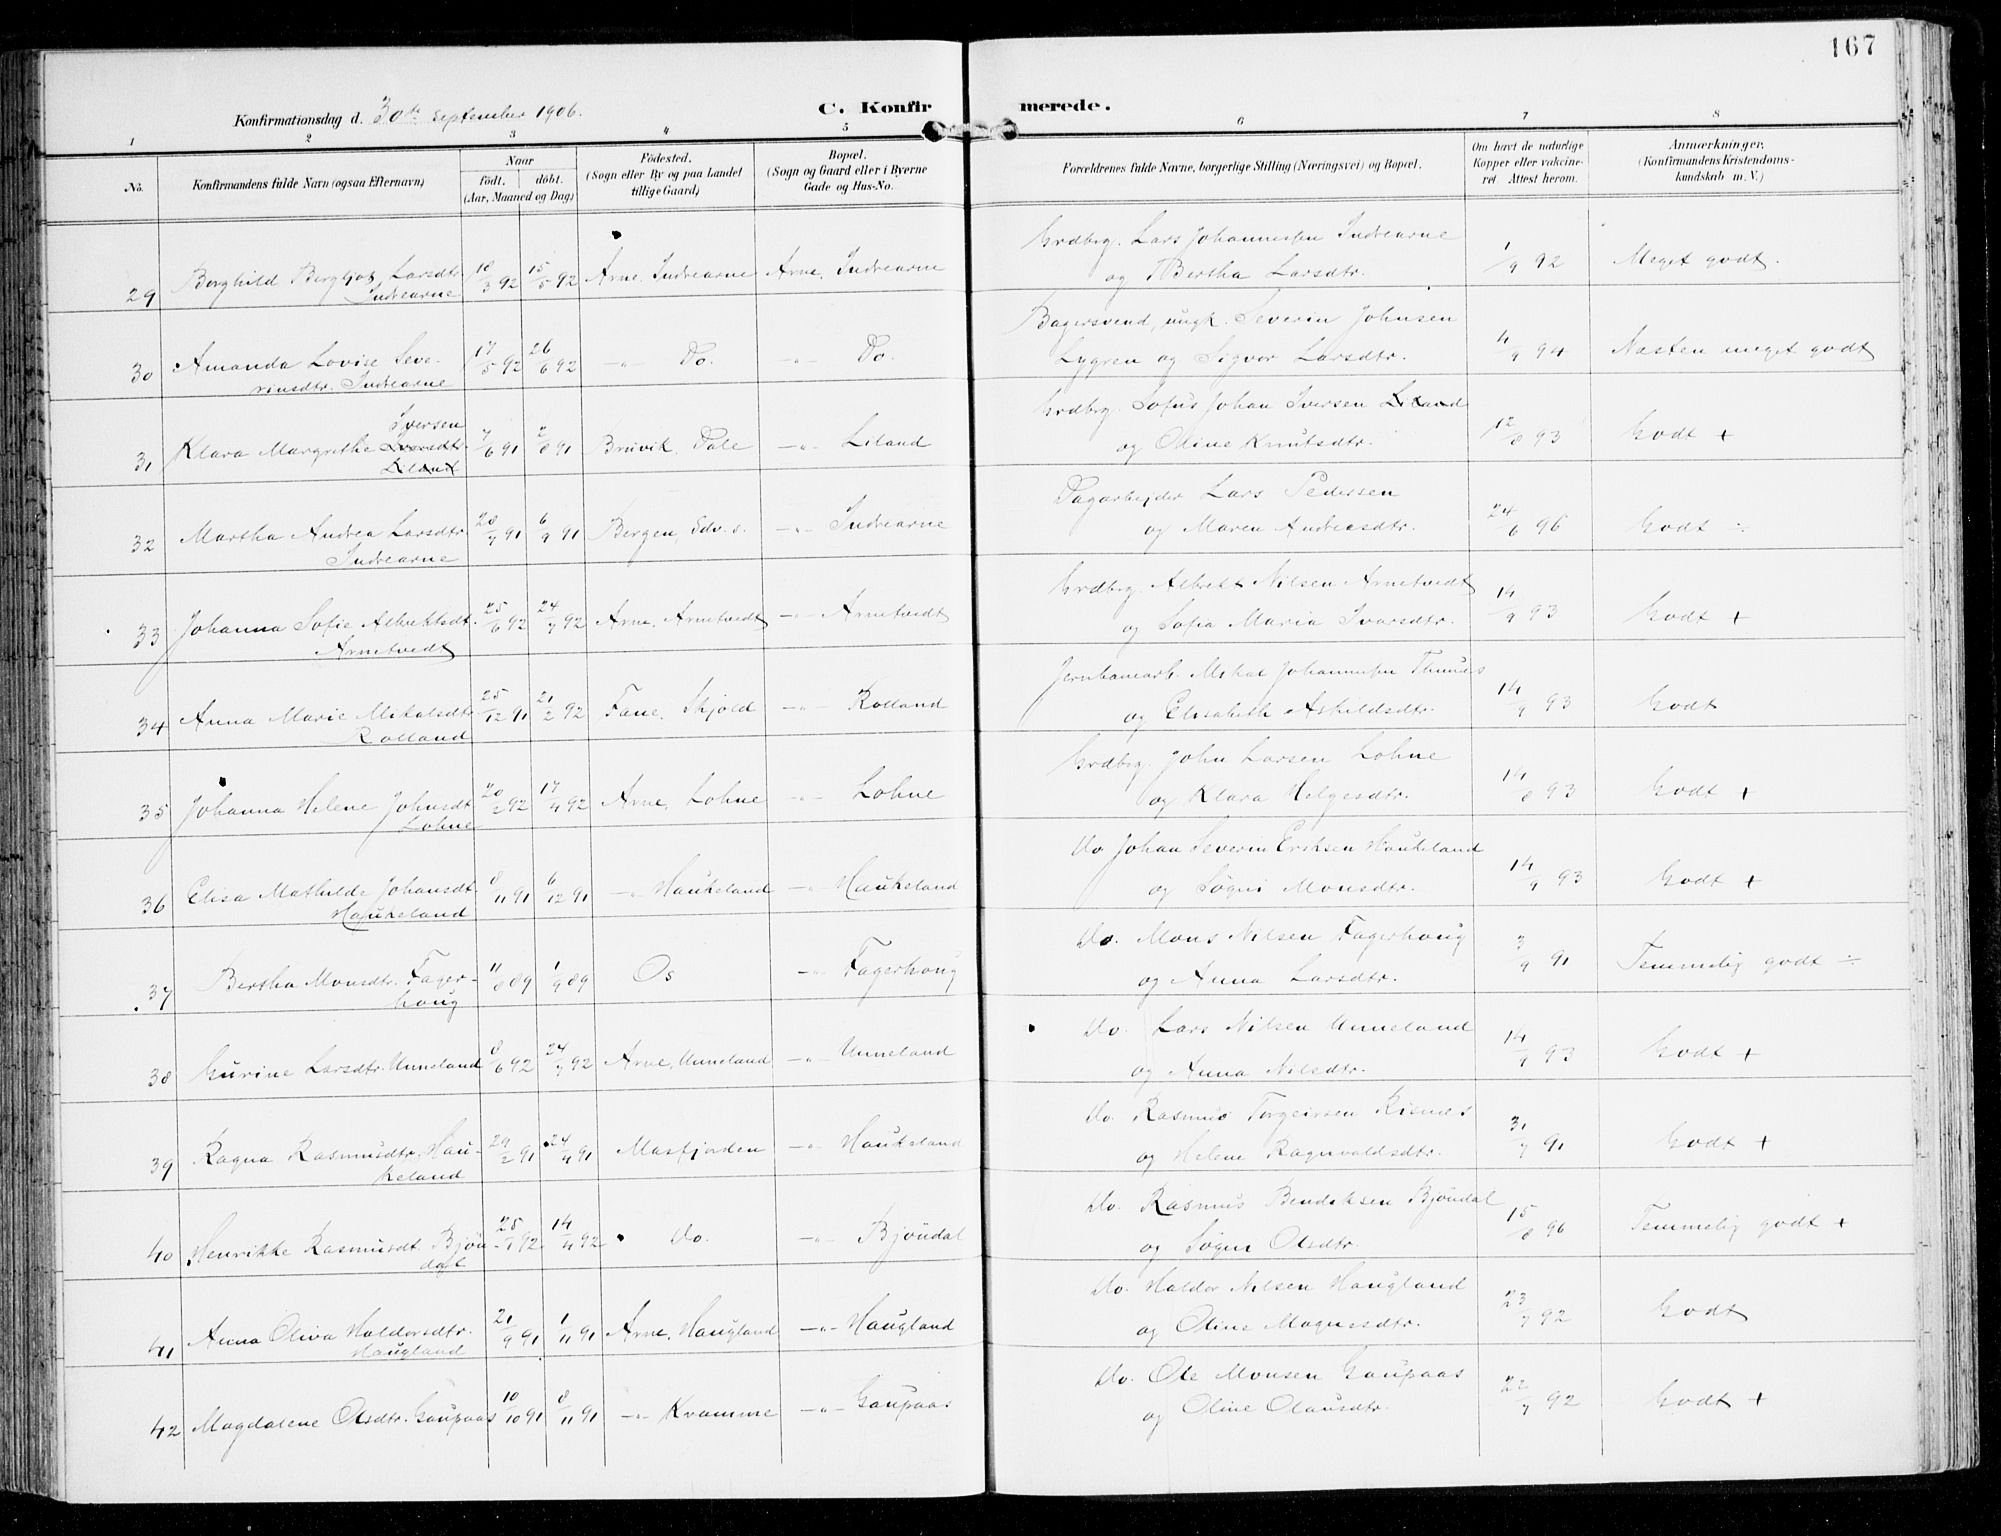 167
Konfirmationsdag d. 30te September 1906.
C. Konfirmerede.
1 2 3 4 5 6 7 8
No.
Konfirmandens fulde Navn (ogsaa Efternavn)
Naar
födt. döbt.
(Aar, Maaned og Dag)
Födested.
(Sogn eller By og paa Landet
tillige Gaard)
Bopæl.
(Sogn og Gaard eller i Byerne
Gade og Hus-No.
Forældrenes fulde Navne, borgerlige Stilling (Næringsvei) og Bopæl.
Om havt de naturlige
Kopper eller vakcine-
ret. Attest herom.
Anmærkninger.
(Konfirmandens Kristendoms-
kundskab m. V.)
29 Borghild Bergljot Larsdtr. 18/3 92 15/5 92 Arne, Indrearne Arne, Indrearne Grdbrg. Lars Johannessen Indrearne 1/9 92 Meget godt.
Indrearne og Bertha Larsdtr.
30 Amanda Lovise Seve- 17/5 92 26/6 92 -"- Do. -"- Do. Bagersvend, ungk. Severin Johnsen 4/9 94 Næsten meget godt
rinsdtr. Indrearne Lygren og Sigvor Larsdtr.
Iversen
31 Klara Margrethe Iversdtr. 7/6 91 2/8 91 Bruvik, Dale -"- Liland Grdbrg. Sofus Johan Iversen Liland 12/8 93 Godt +
Liland og Oline Knutsdtr.
32 Martha Andrea Larsdtr. 28/7 91 6/9 91 Bergen, Edv. s. -"- Indrearne Dagarbejder Lars Pedersen 24/6 96 Godt ÷
Indrearne og Maren Andreasdtr.
33 Johanna Sofie Albrektsdt. 25/6 92 24/7 92 Arne, Arnetvedt -"- Arnetvedt Grdbrg. Albrekt Nilsen Arnetvedt 14/9 93 Godt +
Arnetvedt og Sofia Maria Ivarsdtr.
34 Anna Marie Mikalsdtr. 25/12 91 21/2 92 Fane, Skjold -"- Rolland Jernbanearb. Mikal Johannessen Thunes 14/9 93 Godt
Rolland og Elisabeth Askildsdtr.
35 Johanna Helene Johnsdt. 20/2 92 17/4 92 Arne, Lohne -"- Lohne Grdbrg. John Larsen Lohne 14/8 93 Godt +
Lohne og Klara Helgesdtr.
36 Elisa Mathilde Johansdt. 8/11 91 6/12 91 -"- Haukeland -"- Haukeland Do Johan Severin Eriksen Haukeland 14/9 93 Godt +
Haukeland og Søgni Monsdtr.
37 Bertha Monsdtr. Fager- 11/8 89 1/9 89 Os -"- Fagerhaug Do. Mons Nilsen Fagerhaug 3/9 91 Temmelig godt ÷
haug og Anna Larsdtr.
38 Gurine Larsdtr. Unneland 8/6 92 24/7 92 Arne, Unneland -"- Unneland Do. Lars Nilsen Unneland 14/9 93 Godt +
og Anna Nilsdtr.
39 Ragna Rasmusdtr. Hau- 29/2 91 24/4 91 Masfjorden -"- Haukeland Do. Rasmus Torgeirsen Risnes 31/7 91 Godt +
keland og Helene Ragnvaldsdtr.
40 Henrikke Rasmusdt. Bjön- 25/1 92 14/4 92 Do. -"- Bjöndal Do. Rasmus Bendiksen Bjöndal 15/8 96 Temmelig godt +
dal og Søgni Olsdtr.
41 Anna Oliva Haldorsdtr. 21/9 91 1/11 91 Arne, Haugland -"- Haugland Do. Haldor Nilsen Haugland 23/7 92 Godt
Haugland og Oline Magnesdtr.
42 Magdalene Olsdtr. Gaupaas 10/10 91 8/11 91 -"- Kvamme -"- Gaupaas Do. Ole Monsen Gaupaas 22/7 92 Godt +
og Oline Olausdtr.